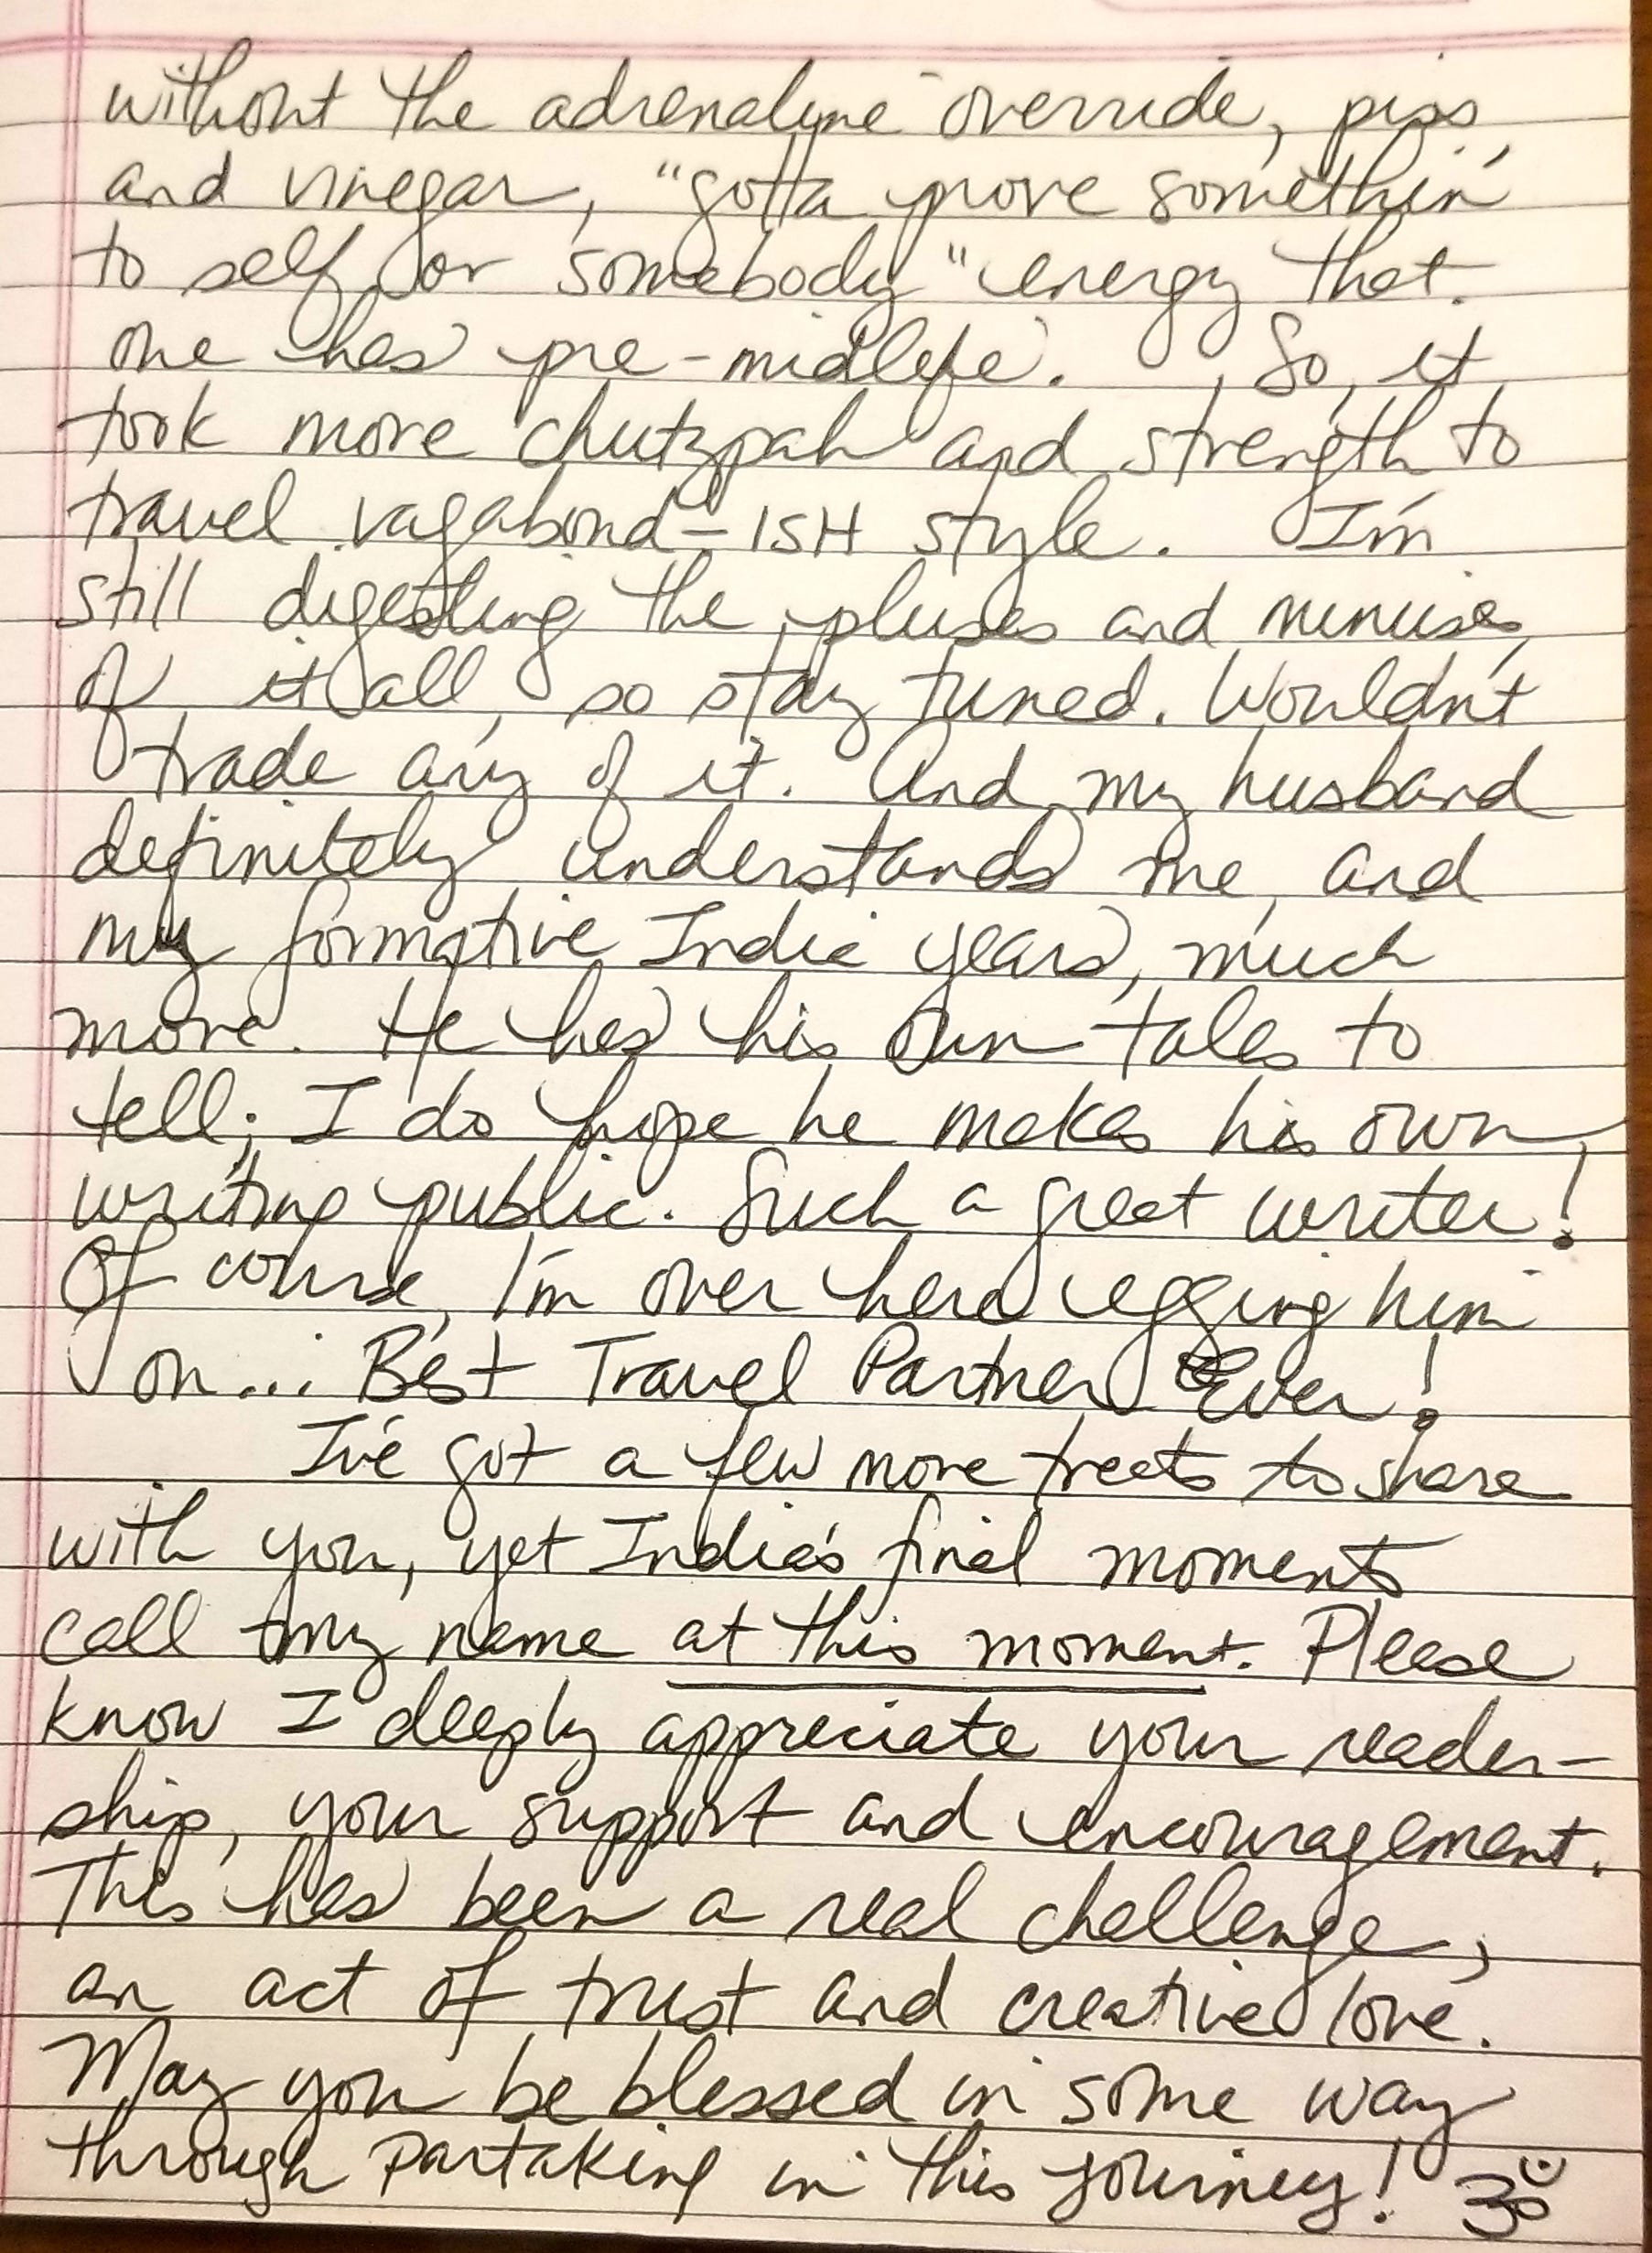 without the adrenaline override, piss
and vinegar, "gotta prove somethin'
to self or somebody" energy that
one has pre-midlife. So, it
took more chutzpah and strength to
travel vagabond-ISH style. I'm
still digesting the pluses and minuses
of it all, so stay tuned. Wouldn't
trade any of it. And my husband
definitely understands me, and
my formative India years, much
more. He has his own tales to
tell; I do hope he makes his own
writing public. Such a great writer!
Of course, I'm over here egging him
on... Best Travel Partner Ever!
I've got a few more treats to share
with you, yet India's final moments
call my name at this moment. Please
know I deeply appreciate your reader-
ship, your support and encouragement.
This has been a real challenge,
an act of trust and creative love.
May you be blessed in some way
through partaking in this journey! ॐ